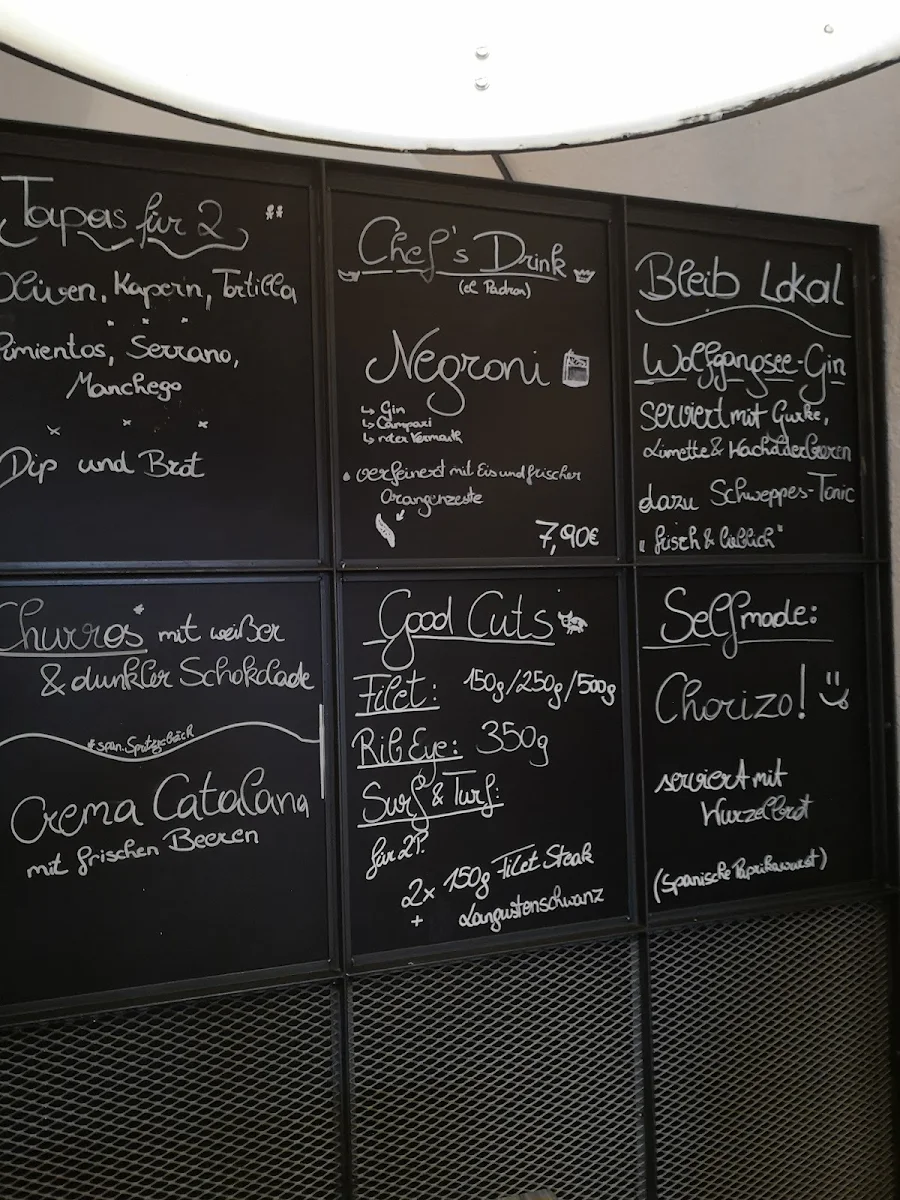 Tapas für 2
Oliven, Kapern, Tortilla
Pimientos, Serrano,
Manchego
Dip und Brot
Chef's Drink
(el Padron)
Negroni
↳ Gin
↳ Campari
↳ roter Vermouth
• verfeinert mit Eis und frischer
Orangenzeste
7,90€
Bleib Lokal
Wolfgangsee-Gin
serviert mit Gurke,
Limette & Wacholderbeeren
dazu Schweppes-Tonic
„frisch & lieblich"
Churros* mit weißer
& dunkler Schokolade
*span. Spritzgebäck
Crema Catalana
mit frischen Beeren
Good Cuts
Filet: 150g/250g/500g
Rib Eye: 350g
Surf & Turf:
für 2P.
2x 150g Filet Steak
+ Langustenschwanz
Selfmade:
Chorizo!
serviert mit
Wurzelbrot
(Spanische Paprikawurst)